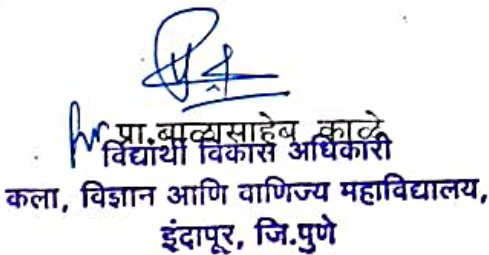 प्रा.बाळासाहेब काळे
विद्यार्थी विकास अधिकारी
कला, विज्ञान आणि वाणिज्य महाविद्यालय,
इंदापूर, जि.पुणे